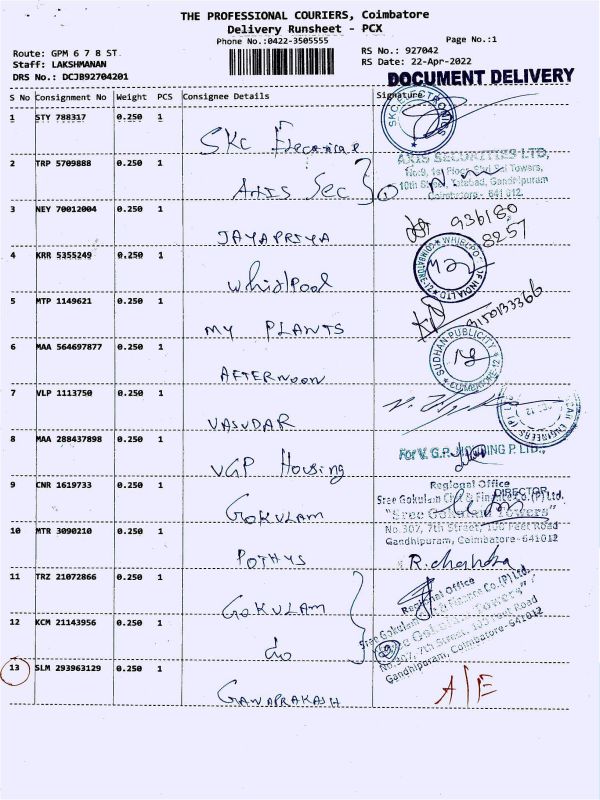 THE PROFESSIONAL COURIERS, Coimbatore
Delivery Runsheet - PCX
Phone No.:0422-3505555
Page No.:1
Route: GPM 6 7 8 ST.
RS No.: 927042
Staff: LAKSHMANAN
RS Date: 22-Apr-2022
DRS No.: DCJB92704201
DOCUMENT DELIVERY
S No Consignment No Weight PCS Consignee Details Signature
1 STY 788317 0.250 1
SKC Electronice
SKC ELECTRONICS
2 TRP 5709888 0.250 1
AXIS Sec
AXIS SECURITIES LTD,
No:9, 1st Floor, Towers,
10th Street, Tatabad, Gandhipuram
Coimbatore - 641 012.
3 NEY 70012004 0.250 1
JAYAPRIYA
936180
8257
4 KRR 5355249 0.250 1
Whirlpool
WHIRLPOOL OF INDIA LTD
COIMBATORE-12
5 MTP 1149621 0.250 1
MY PLANTS
9150133366
6 MAA 564697877 0.250 1
AFTERNOON
SUDHAN PUBLICITY
COIMBATORE 12
7 VLP 1113750 0.250 1
VASUDAR
ENGINEERS (P)
8 MAA 288437898 0.250 1
VGP Housing
For V.G.P. HOUSING P. LTD.,
DIRECTOR
9 CNR 1619733 0.250 1
GOKULAM
Regional Office
Sree Gokulam Chit & Finance Co.(P) Ltd.
"Sree Gokulam Towers"
No.307, 7th Street, 100 Feet Road
Gandhipuram, Coimbatore-641012
10 MTR 3090210 0.250 1
POTHYS
R. chandra
11 TRZ 21072866 0.250 1
GOKULAM
12 KCM 21143956 0.250 1
do
Regional Office
Sree Gokulam Chit & Finance Co.(P) Ltd.
"Sree Gokulam Towers"
No.307, 7th Street, 100 Feet Road
Gandhipuram, Coimbatore-641012
13 SLM 293963129 0.250 1
GANAPRAKASH
A/E